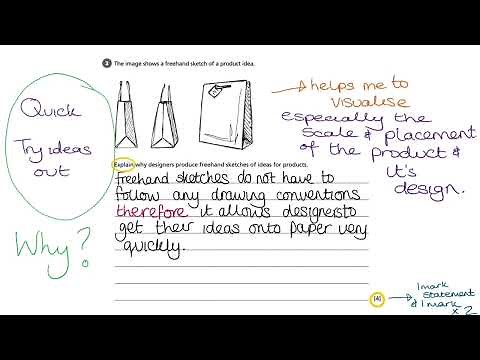 2 The image shows a freehand sketch of a product idea.
Quick
Try ideas
out
Why?
→ helps me to
visualise
especially the
scale & placement
of the product &
it's
design.
Explain why designers produce freehand sketches of ideas for products.
freehand sketches do not have to
follow any drawing conventions
therefore it allows designers to
get their ideas onto paper very
quickly.
[4] → 1 mark
statement
& 1 mark
x 2